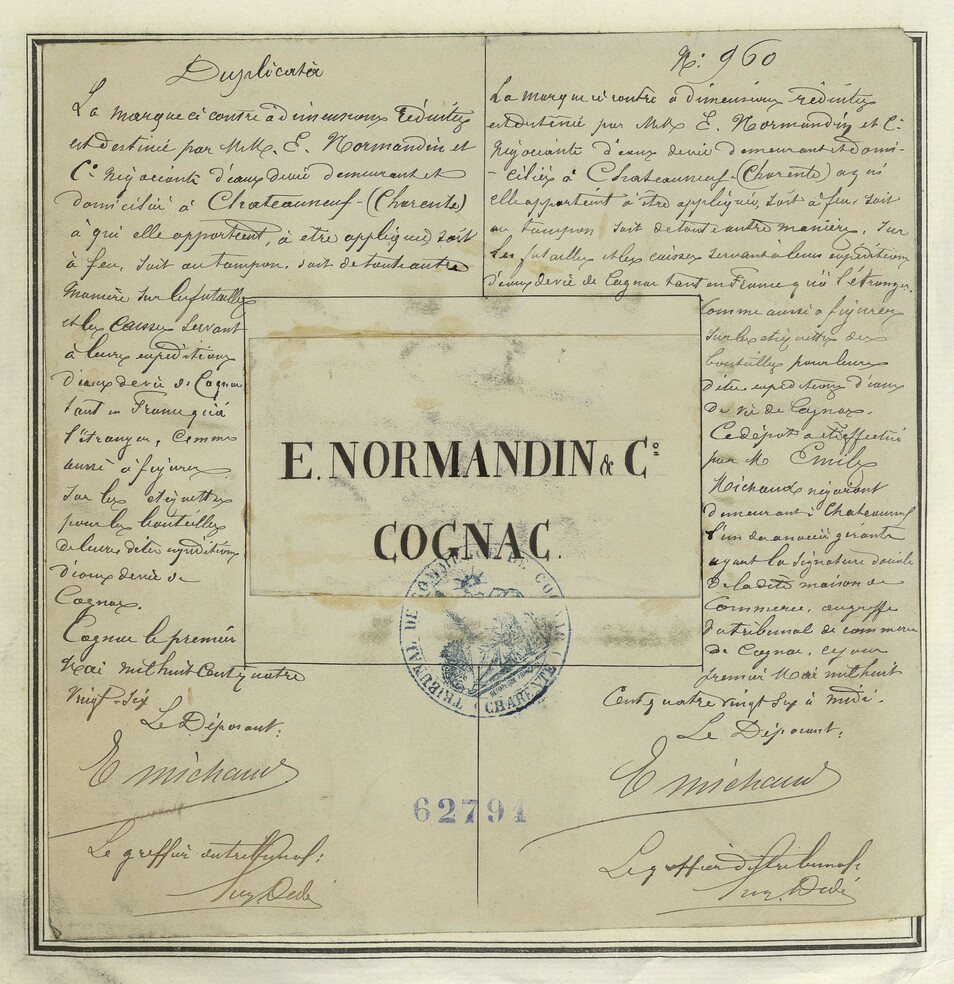 Duplicata
La marque ci contre à dimensions réduites
est destinée par M.M. E. Normandin et
Cº négociants d'eaux devie demeurant et
domiciliés à Chateauneuf-(Charente)
à qui elle appartient, à etre appliquée soit
à feu, soit au tampon, soit de toute autre
manière sur les futailles
et les caisses servant
à leurs expéditions
d'eaux devie de Cognac
tant en France qu'à
l'étranger, comme
aussi à figurer
sur les etiquettes
pour les bouteilles
de leurs dites expéditions
d'eaux devie de
Cognac.
Cognac le premier
Mai mil huit Cent quatre
Vingt-Six
Le Déposant:
E Michaud
Le greffier du tribunal:
Nº: 960
La marque ci contre à dimensions réduites
est destinée par M.M. E. Normandin et Cº
négociants d'eaux devie demeurant et domi-
-ciliés à Chateauneuf-(Charente) à qui
elle appartient à être appliquée, soit à feu, soit
au tampon soit de toute autre manière, sur
les futailles et les caisses servant à leurs expéditions
d'eaux devie de Cognac tant en France qu'à l'étranger,
comme aussi à figurer
sur les etiquettes des
bouteilles pour leurs
dites expéditions d'eaux
de vie de Cognac.
Ce dépôt a été effectué
par M Emile
Michaud négociant
demeurant à Chateauneuf
l'un des gérants
ayant la signature sociale
de la dite maison de
Commerce, au greffe
du tribunal de commerce
de Cognac, ce jour
premier Mai mil huit
Cent quatre vingt six à midi.
Le Déposant:
E Michaud
Le greffier du tribunal:
E. NORMANDIN & Cº
COGNAC.
TRIBUNAL DE COMMERCE DE COGNAC (CHARENTE)
62794